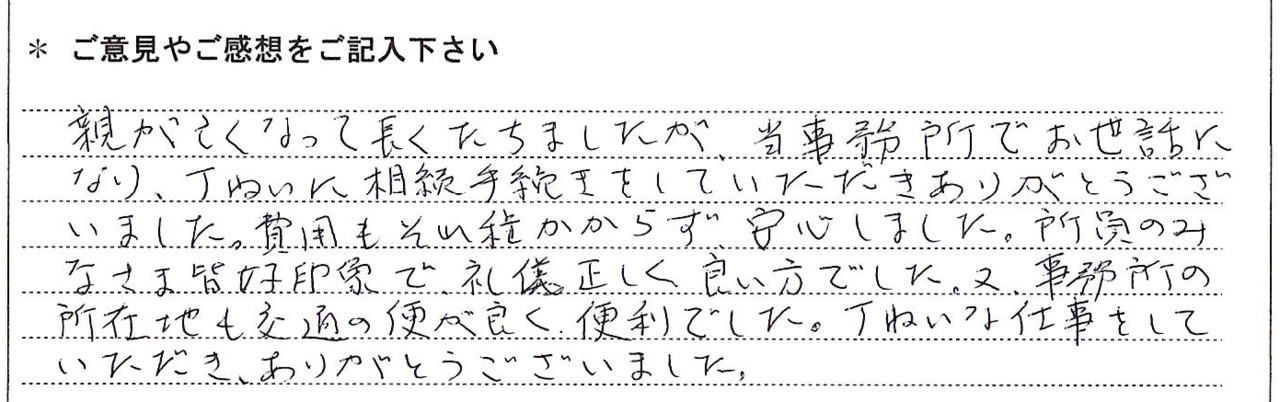 * ご意見やご感想をご記入下さい
親が亡くなって長くたちましたが、当事務所でお世話に
なり、丁ねいに相続手続きをしていただきありがとうござ
いました。費用もそれ程かからず、安心しました。所員のみ
なさま皆好印象で、礼儀正しく良い方でした。又、事務所の
所在地も交通の便が良く、便利でした。丁ねいな仕事をして
いただき、ありがとうございました。